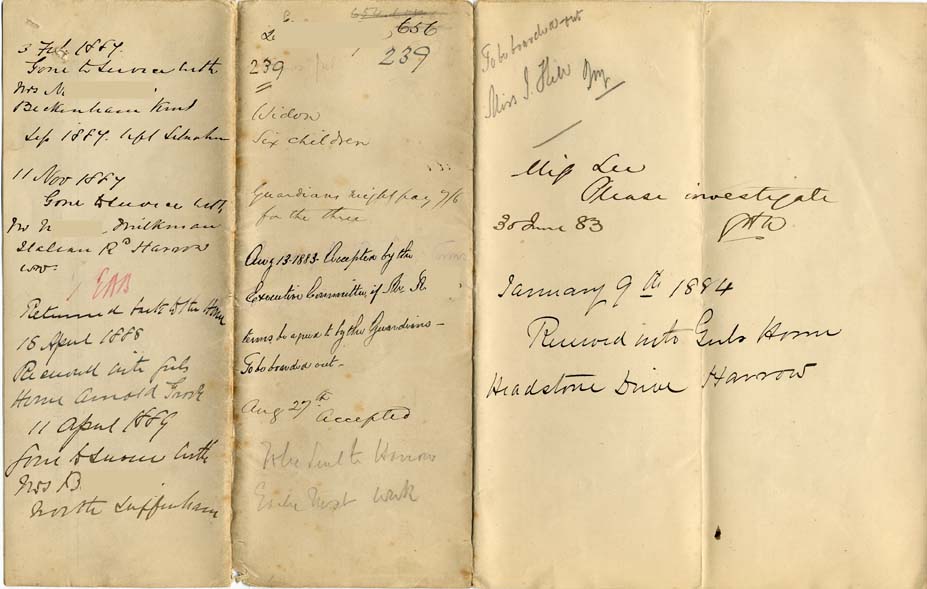 3 Feb 1887.
Gone to Service with
Mrs M
Beckenham Kent
Sep 1887. left Situation
11 Nov 1887
Gone to Service with
Mr N , Milkman
Rd Harrow
EAB
Returned back to the Home
16 April 1888
Received into Girls
Home Arnold Grove
11 April 1889
Gone to Service with
Mrs B.
North Luffenham
656
239 239
Widow
Six children
Guardians might pay 7/6
for the three
Aug 13. 1883. Accepted by the
Executive Committee, if the
terms be agreed to by the Guardians—
To be boarded out—
Aug 27th Accepted
To be sent to Harrow
Early next week
To be boarded out
Miss I. Hill
Miss Lee
Please investigate
30 June 83
January 9th 1884
Received into Girls Home
Headstone Drive Harrow